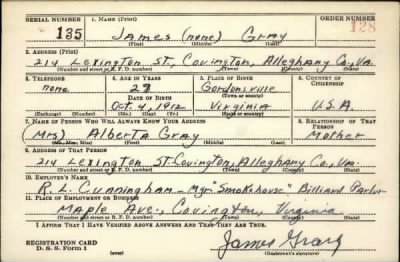 SERIAL NUMBER 1. NAME (Print) ORDER NUMBER
135 James (none) Gray 128
(First) (Middle) (Last)
2. ADDRESS (Print)
214 Lexington St., Covington, Alleghany Co., Va.
(Number and street or R. F. D. number) (Town) (County) (State)
3. TELEPHONE 4. AGE IN YEARS 5. PLACE OF BIRTH 6. COUNTRY OF CITIZENSHIP
none 28 Gordonsville
DATE OF BIRTH (Town or county)
Oct. 4, 1912 Virginia U.S.A.
(Exchange) (Number) (Mo.) (Day) (Yr.) (State or country)
7. NAME OF PERSON WHO WILL ALWAYS KNOW YOUR ADDRESS 8. RELATIONSHIP OF THAT PERSON
(Mrs) Alberta Gray Mother
(Mr., Mrs., Miss) (First) (Middle) (Last)
9. ADDRESS OF THAT PERSON
214 Lexington St. Covington, Alleghany Co., Va.
(Number and street or R. F. D. number) (Town) (County) (State)
10. EMPLOYER'S NAME
R. L. Cunningham - Mgr. "Smokehouse" Billiard Parlor
11. PLACE OF EMPLOYMENT OR BUSINESS
Maple Ave., Covington, Virginia
(Number and street or R. F. D. number) (Town) (County) (State)
I AFFIRM THAT I HAVE VERIFIED ABOVE ANSWERS AND THAT THEY ARE TRUE.
REGISTRATION CARD James Gray
D. S. S. Form 1 (Registrant's signature)